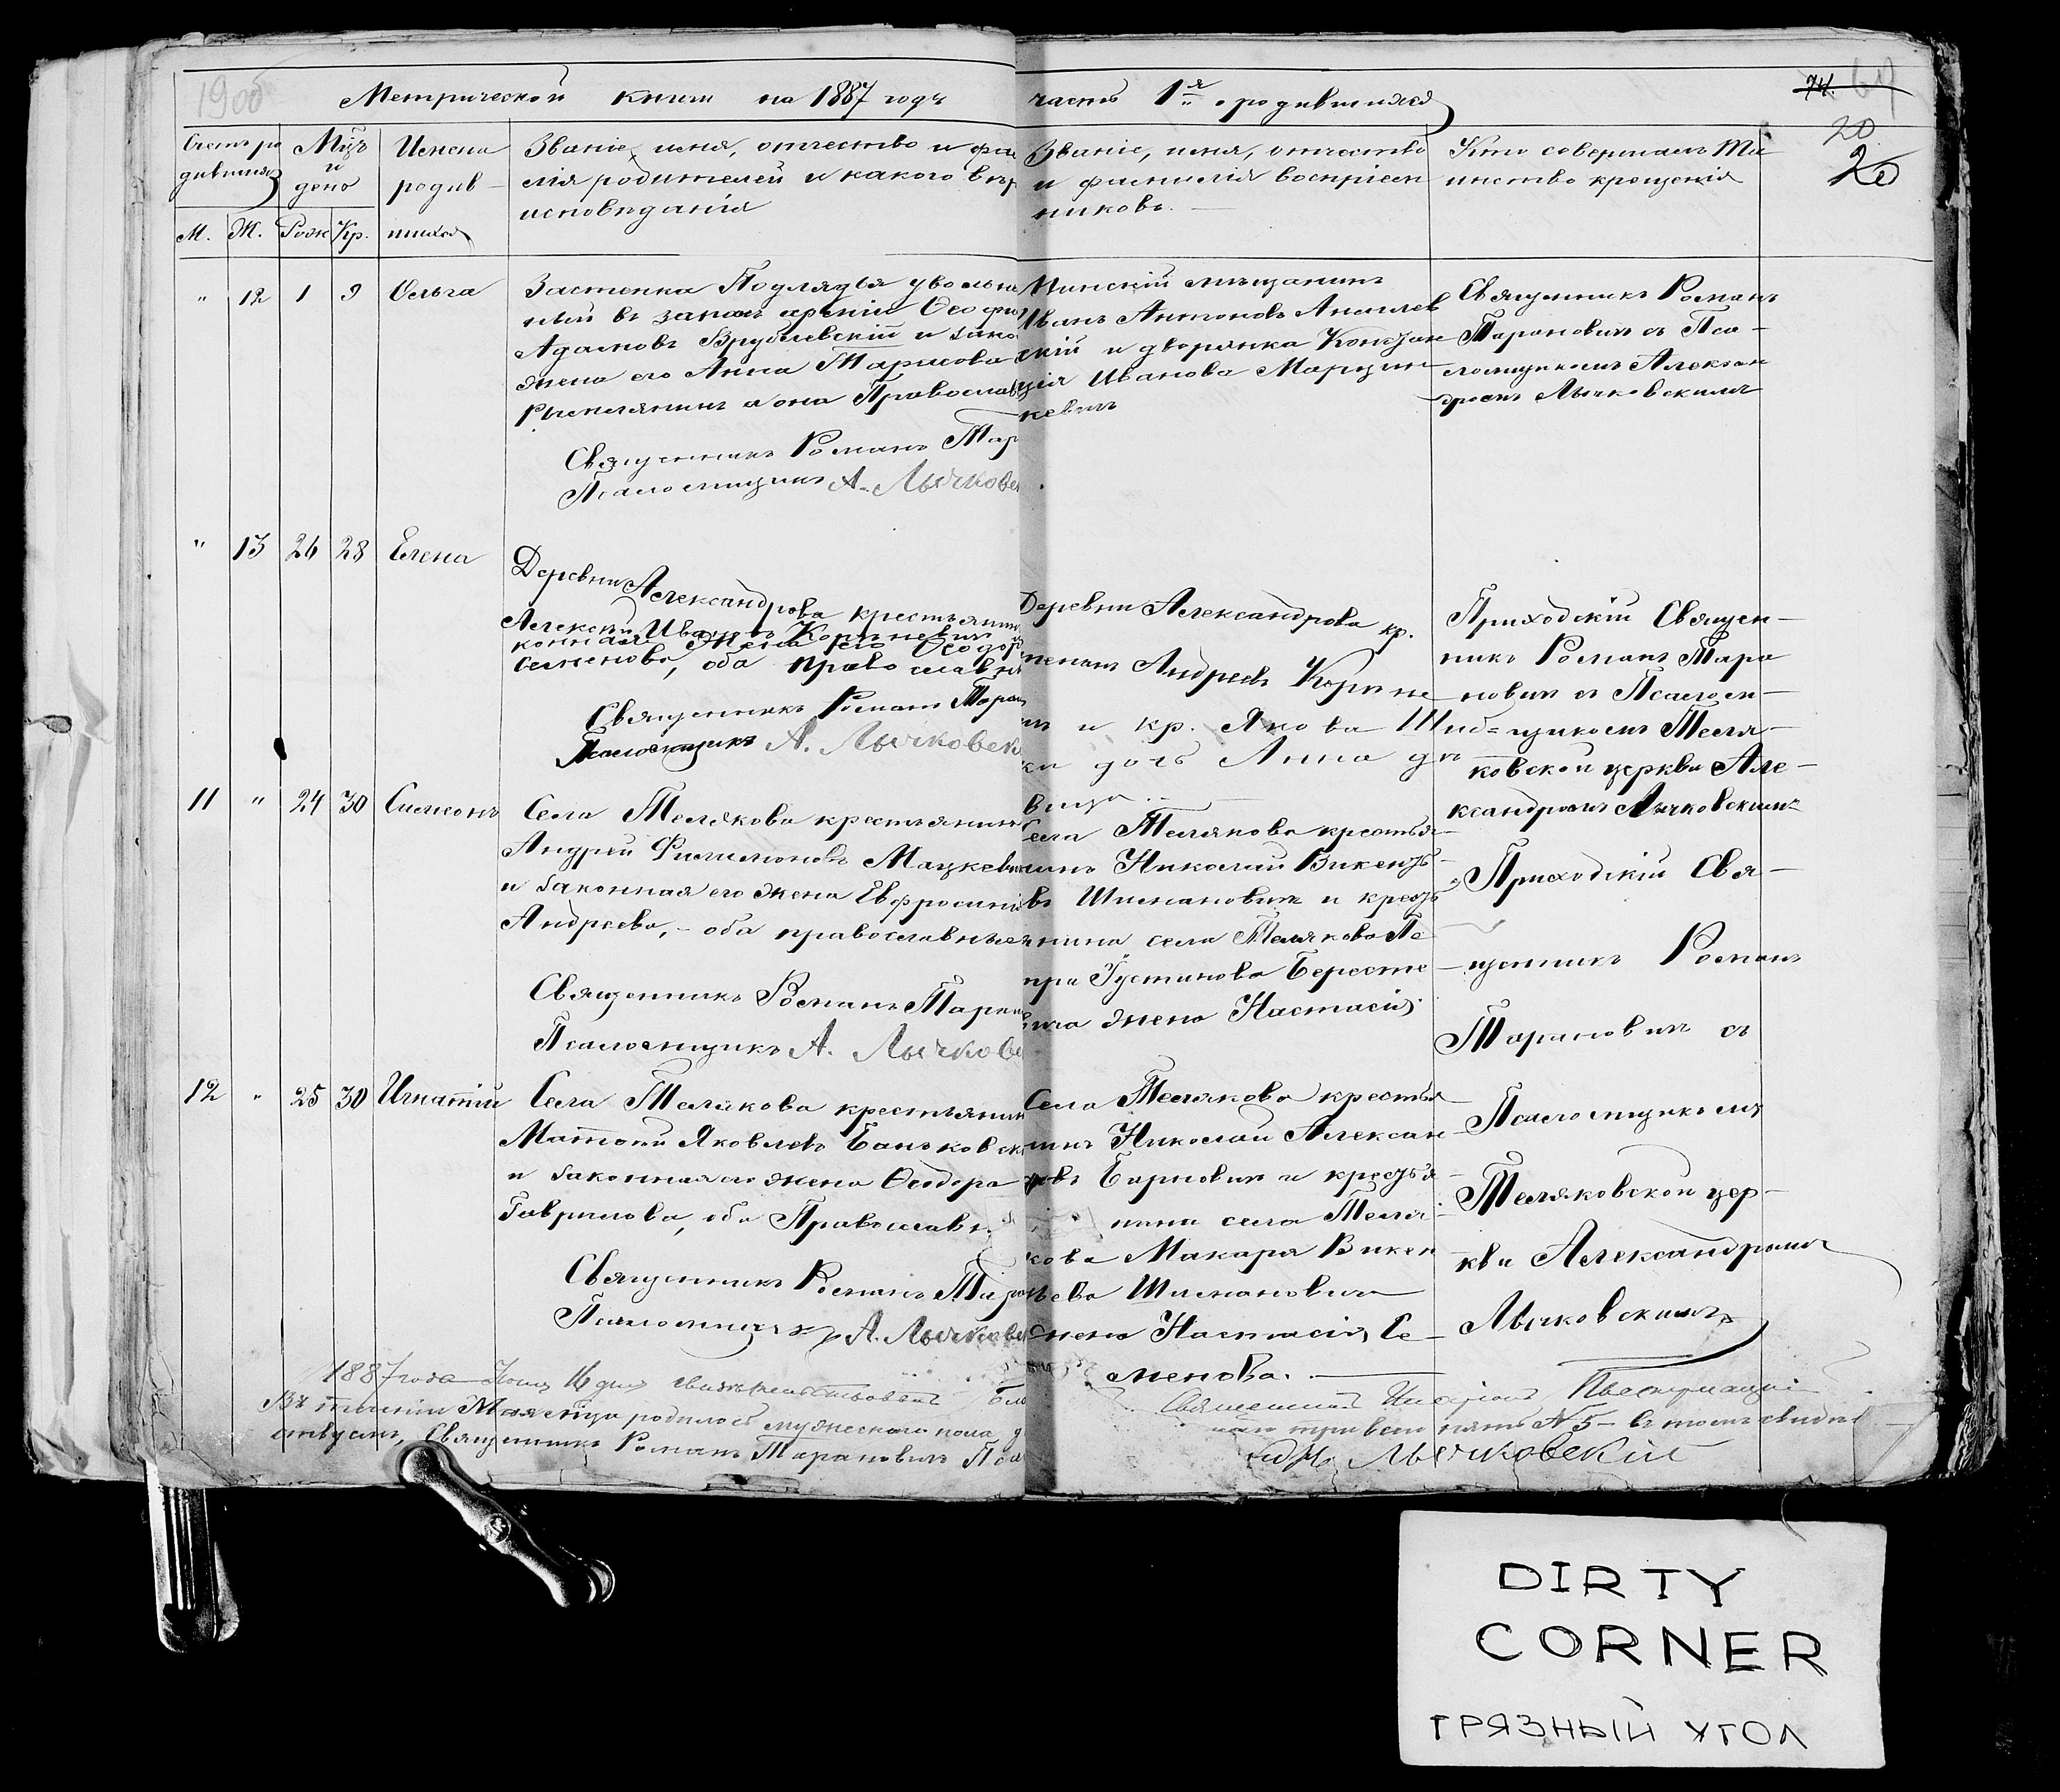 1906
Метрической книги на 1887 годъ
часть 1я о родившихся
74
20
20
Счетъ ро
дившихся
М. Ж.
Мцъ
и
день
Рож Кр.
Имена
родив-
шихся
Званіе, имя, отчество и фа
лія родителей и какого вѣр
исповѣданія
Званіе, имя, отчество
и фамилія воспріем
никовъ.
Кто совершалъ Та
инство крещенія
" 12 1 9 Ольга
Застенка Подлядья уволен
ный въ запасъ арміи Ѳеофи
Адамовъ Врублевскій и зако
жена его Анна Тарасова
Римлянинъ а она Православ
Священникъ Романъ Тар
Псаломщикъ А. Лычковск
Минскій мѣщанинъ
Иванъ Антоновъ
скій и дворянка Констан
ція Иванова Марцин
кевичъ
Священникъ Романъ
Тарановичъ съ Пса-
ломщикомъ Алексан
дромъ Лычковскимъ
" 13 26 28 Елена
Деревни Александрова крестьянинъ
Алексѣй Ивановъ Кориневичъ
конная жена его Ѳеодор
Семенова, оба православн
Священникъ Романъ Таран
Псаломщикъ А. Лычковск
Деревни Александрова кр.
Андреевъ Корине
и кр. Якова Шиб=
ки дочь Анна дѣ
вица.
Приходскій Священ-
никъ Романъ Тара
новичъ съ Псалом-
щикомъ Теля-
ковской церкви Але-
ксандромъ Лычковскимъ
11 " 24 30 Симеонъ
Села Телякова крестьянинъ
Андрей Филимоновъ Мацкеви
и законная его жена Евфросині
Андреева, - оба православные
Священникъ Романъ Таран
Псаломщикъ А. Лычковс
Села Телякова крестья-
нинъ Николай Викенть-
въ Шимановичъ и кресть
янина села Телякова Пе
тра Густинова Бересне
вича жена Настасія
Приходскій Свя-
щенникъ Романъ
Тарановичъ съ
12 " 25 30 Игнатій
Села Телякова крестьянин
Матѳей Яковлевъ Баньковск
и законная его жена Ѳеодора
Гаврилова, оба Православн.
Священникъ Романъ Таран
Псаломщикъ А. Лычковс
Села Телякова крестья
нинъ Николай Алексан
ровъ Барновичъ и крестья
нина села Теля
кова Макара Викен
тьева Шимановича
жена Настасія Се-
менова.
Псаломщикомъ
Теляковской цер-
кви Александромъ
Лычковскимъ
1887 года 16 дня свидѣтельствовалъ
Въ теченіи Мая мѣсяца родилось мужескаго пола
Священникъ Романъ Тарановичъ Пса
Священникъ
пять №5 - въ томъ свидѣ
Лычковскій
DIRTY
CORNER
ГРЯЗНЫЙ УГОЛ